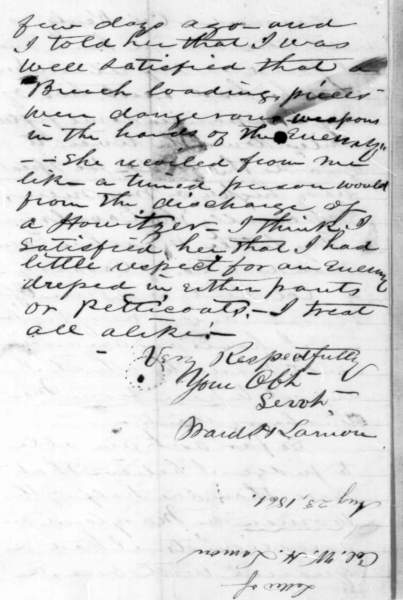 few days ago and
I told her that I was
well satisfied that a
Breech loading pieces
were dangerous weapons
in the hands of the Enemy"
-- She recoiled from me
like a timed person would
from the discharge of
a Howitzer - I think I
satisfied her that I had
little respect for an Enemy
dreped in Either pants
or petticoats - I treat
all alike -
Very Respectfully
Your Obt
Servt
Ward H Lamon
Letter of
Col. W. H. Lamon
Aug 23, 1861.